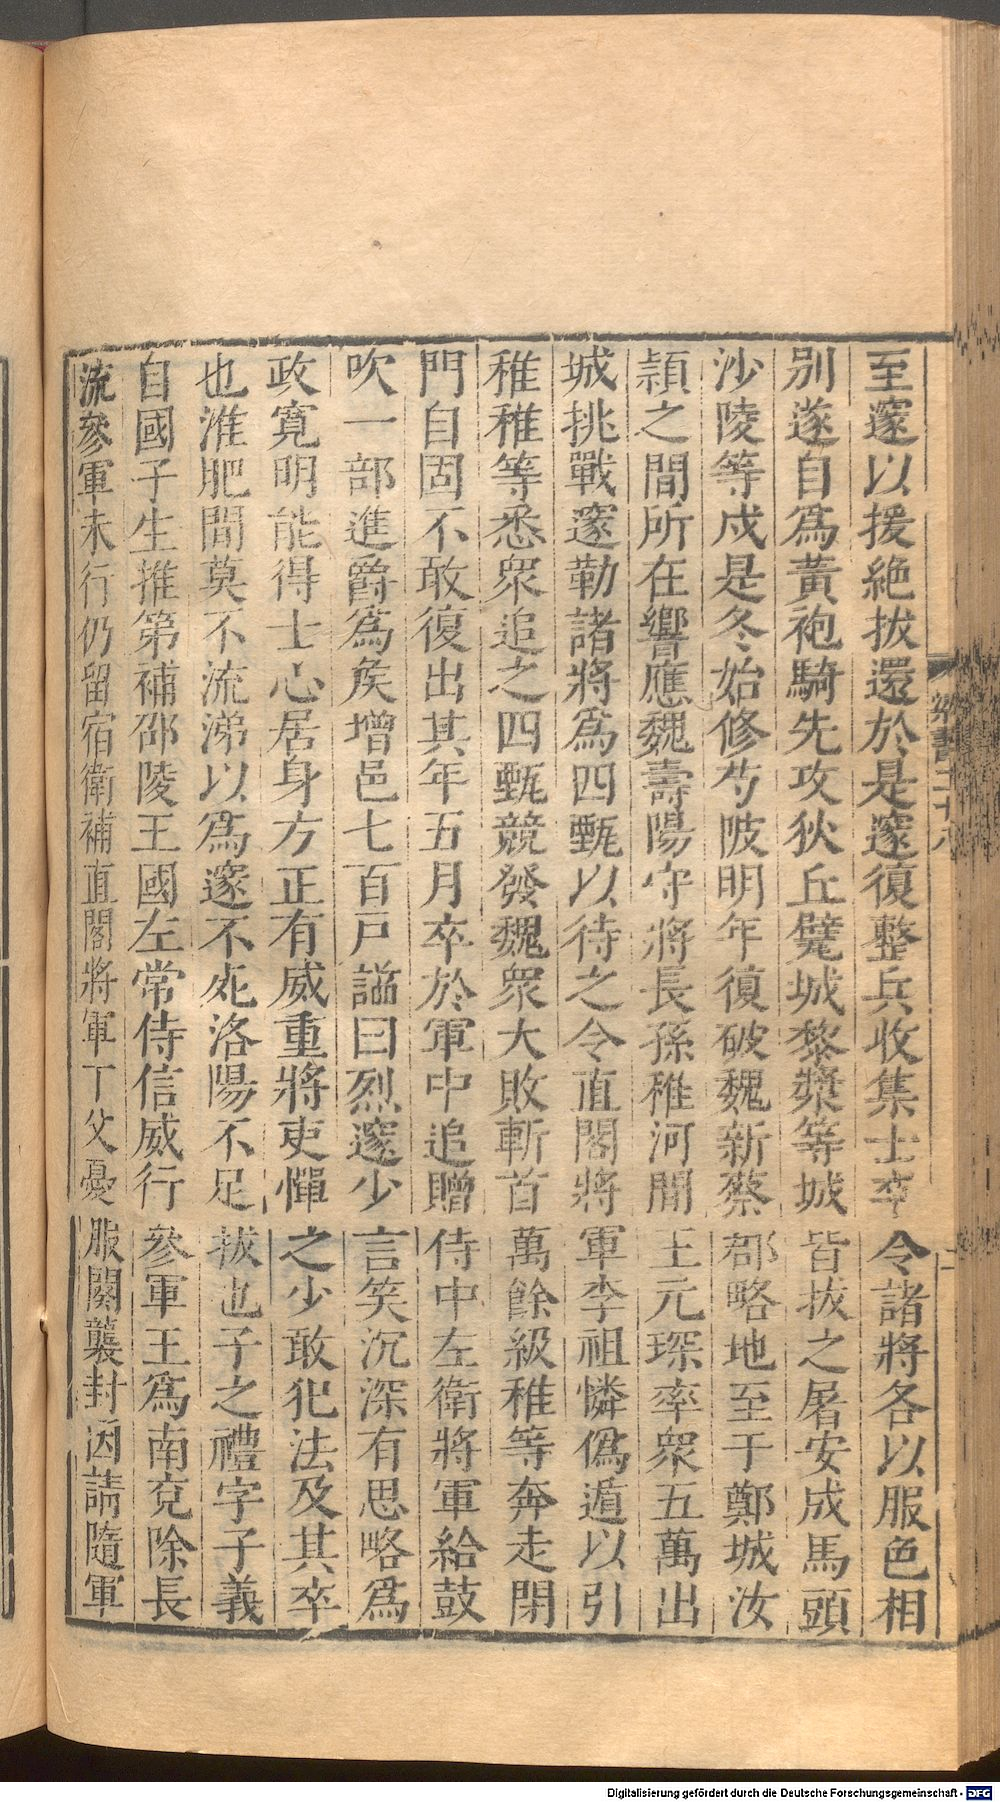 至邃以援絶拔還於是邃復整兵收集士卒令諸將各以服色相
别遂自爲黄袍騎先攻狄丘甓城黎漿等城皆拔之屠安成馬頭
沙陵等戍是冬始修芍陂明年復破魏新蔡郡略地至于鄭城汝
頴之間所在響應魏壽陽守將長孫稚河間王元琛率衆五萬出
城挑戰邃勒諸將爲四甄以待之令直閣將軍李祖憐僞遁以引
稚稚等悉衆追之四甄競發魏衆大敗斬首萬餘級稚等奔走閉
門自固不敢復出其年五月卒於軍中追贈侍中左衛將軍給鼓
吹一部進爵爲矦增邑七百戸諡曰烈邃少言笑沉深有思略爲
政寛明能得士心居身方正有威重將吏憚之少敢犯法及其卒
也淮肥間莫不流涕以爲邃不死洛陽不足拔也子之禮字子義
自國子生推第補邵陵王國左常侍信威行參軍王爲南兖除長
流參軍未行仍留宿衛補直閣將軍丁父憂服闋襲封因請隨軍
梁書二十八
二
Digitalisierung gefördert durch die Deutsche Forschungsgemeinschaft - DFG